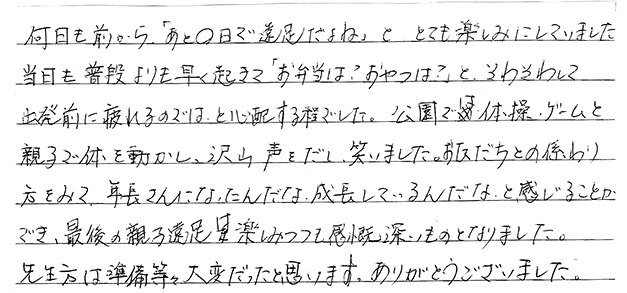 何日も前から、「あと〇日で遠足だよね」と とても楽しみにしていました
当日も普段よりも早く起きて「お弁当は?おやつは?」と、そわそわして
出発前に疲れるのでは、と心配する程でした。公園では体操・ゲームと
親子で体を動かし、沢山声をだし、笑いました。お友だちとの係わり
方をみて、年長さんになったんだな、成長しているんだな、と感じることが
でき、最後の親子遠足は楽しみつつも感慨深いものとなりました。
先生方は準備等々大変だったと思います。ありがとうございました。